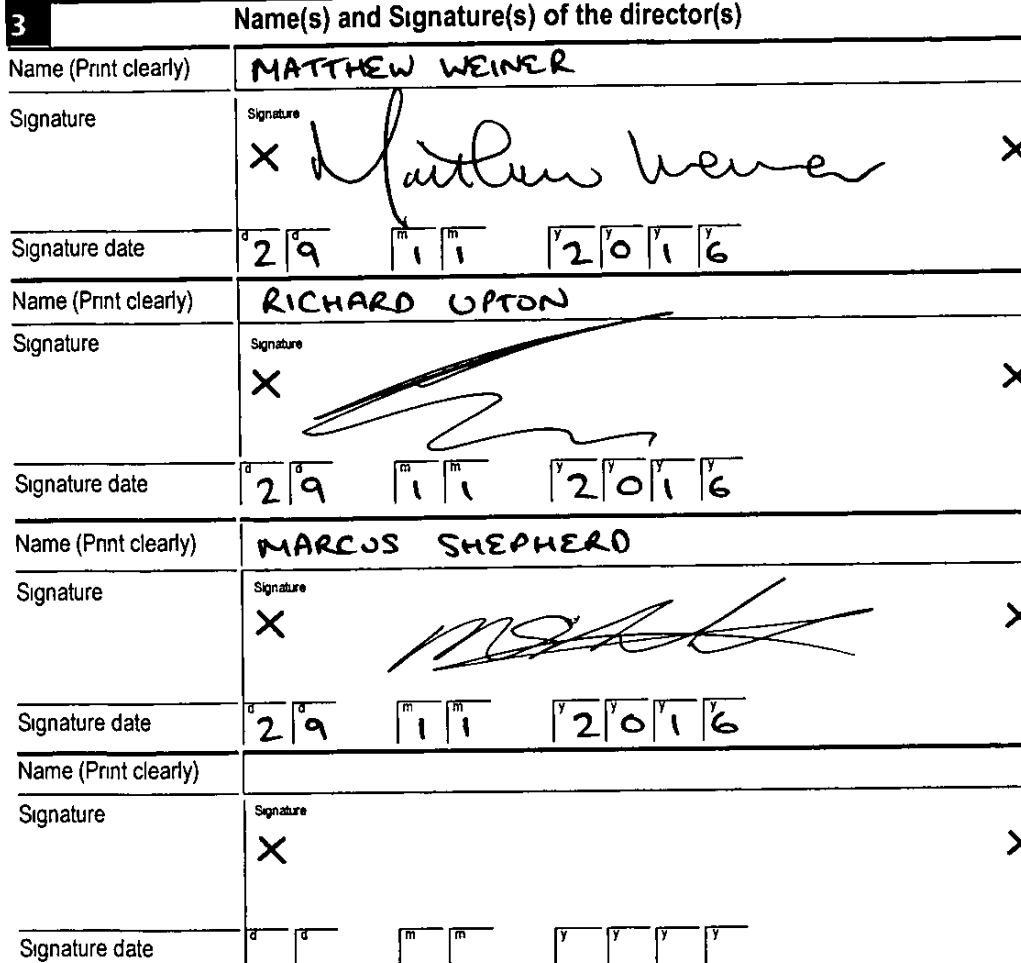 3 Name(s) and Signature(s) of the director(s)
Name (Print clearly) MATTHEW WEINER
Signature Signature
× Matthew Weiner ×
Signature date d2 d9 m1 m1 y2 y0 y1 y6
Name (Print clearly) RICHARD UPTON
Signature Signature
× ×
Signature date d2 d9 m1 m1 y2 y0 y1 y6
Name (Print clearly) MARCUS SHEPHERD
Signature Signature
× ×
Signature date d2 d9 m1 m1 y2 y0 y1 y6
Name (Print clearly)
Signature Signature
× ×
Signature date d d m m y y y y